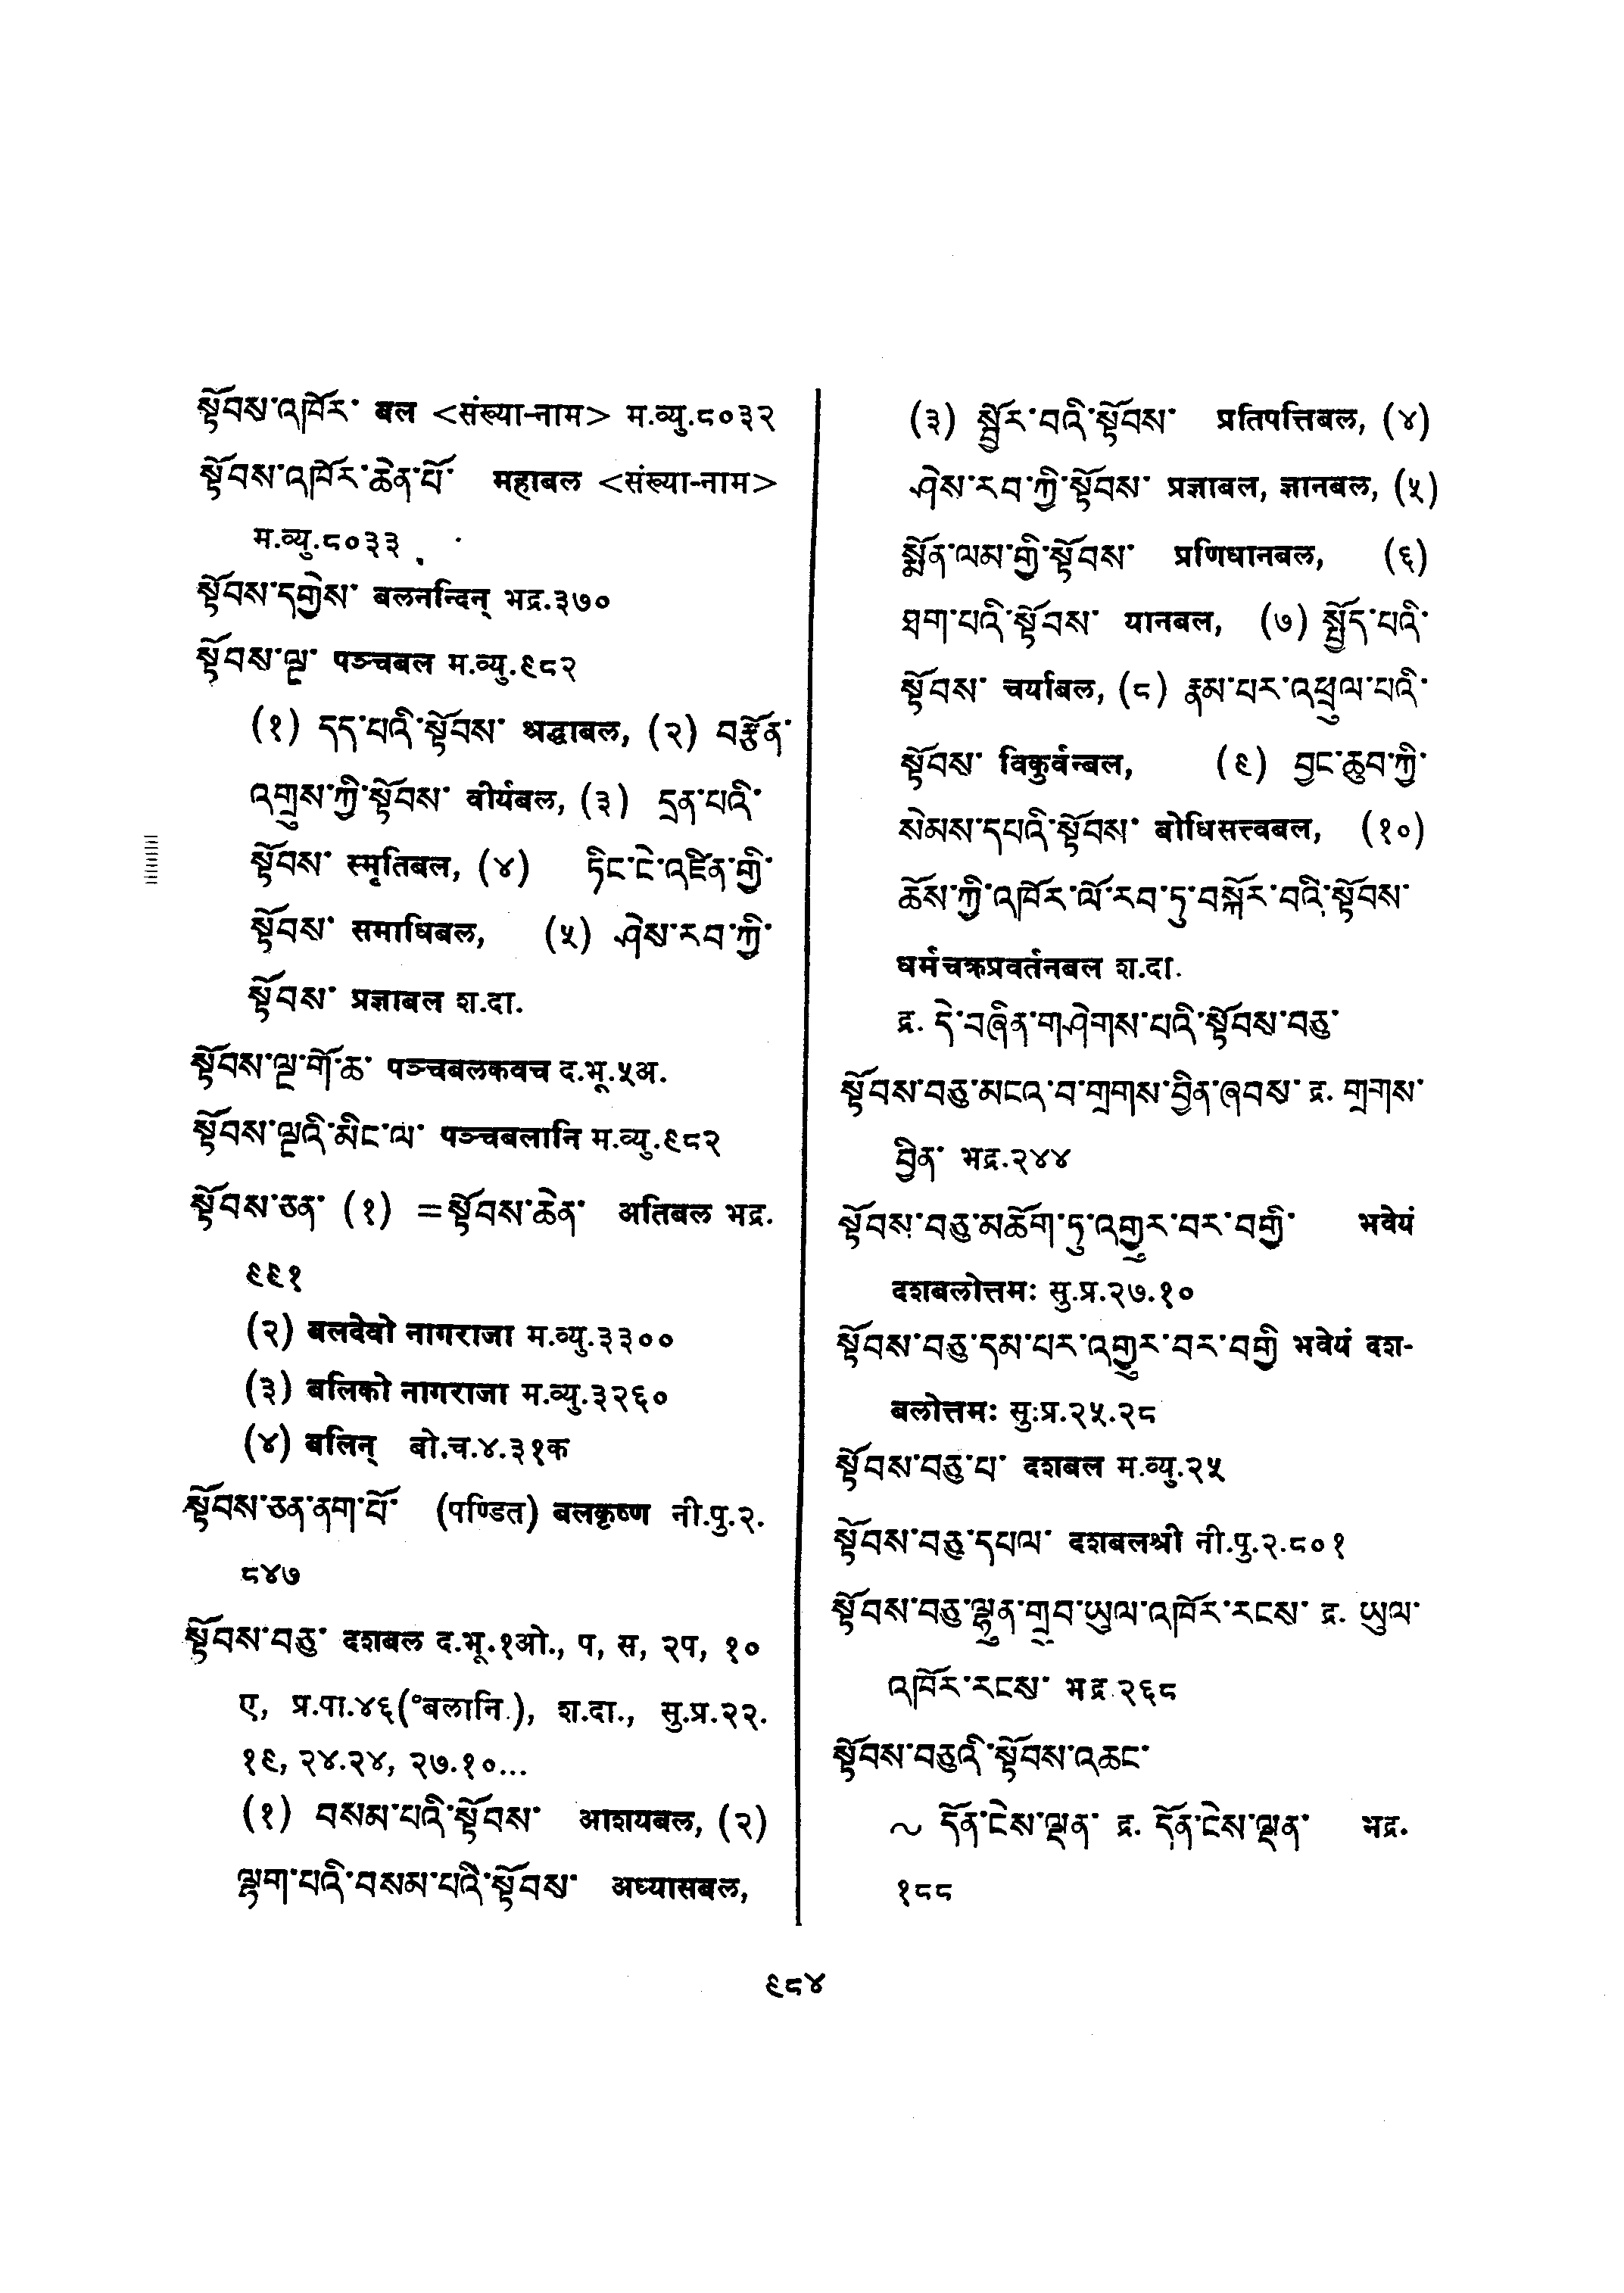 སྟོབས་འཁོར་ बल <संख्या-नाम> म.व्यु.८०३२
སྟོབས་འཁོར་ཆེན་པོ་ महाबल <संख्या-नाम>
म.व्यु.८०३३
སྟོབས་དགྱེས་ बलनन्दिन् भद्र.३७०
སྟོབས་ལྔ་ पञ्चबल म.व्यु.९८२
(१) དད་པའི་སྟོབས་ श्रद्धाबल, (२) བརྩོན་
འགྲུས་ཀྱི་སྟོབས་ वीर्यबल, (३) དྲན་པའི་
སྟོབས་ स्मृतिबल, (४) ཏིང་ངེ་འཛིན་གྱི་
སྟོབས་ समाधिबल, (५) ཤེས་རབ་ཀྱི་
སྟོབས་ प्रज्ञाबल श.दा.
སྟོབས་ལྔ་གོ་ཆ་ पञ्चबलकवच द.भू.५अ.
སྟོབས་ལྔའི་མིང་ལ་ पञ्चबलानि म.व्यु.९८२
སྟོབས་ཅན་ (१) =སྟོབས་ཆེན་ अतिबल भद्र.
९९१
(२) बलदेवो नागराजा म.व्यु.३३००
(३) बलिको नागराजा म.व्यु.३२६०
(४) बलिन् बो.च.४.३१क
སྟོབས་ཅན་ནག་པོ་ (पण्डित) बलकृष्ण नी.पु.२.
८४७
སྟོབས་བཅུ་ दशबल द.भू.१ओ., प, स, २प, १०
ए, प्र.पा.४६(°बलानि.), श.दा., सु.प्र.२२.
१९, २४.२४, २७.१०...
(१) བསམ་པའི་སྟོབས་ आशयबल, (२)
ལྷག་པའི་བསམ་པའི་སྟོབས་ अध्यासबल,
(३) སྦྱོར་བའི་སྟོབས་ प्रतिपत्तिबल, (४)
ཤེས་རབ་ཀྱི་སྟོབས་ प्रज्ञाबल, ज्ञानबल, (५)
སྨོན་ལམ་གྱི་སྟོབས་ प्रणिधानबल, (६)
ཐག་པའི་སྟོབས་ यानबल, (७) སྤྱོད་པའི་
སྟོབས་ चर्याबल, (८) རྣམ་པར་འཕྲུལ་པའི་
སྟོབས་ विकुर्वन्बल, (९) བྱང་ཆུབ་ཀྱི་
སེམས་དཔའི་སྟོབས་ बोधिसत्त्वबल, (१०)
ཆོས་ཀྱི་འཁོར་ལོ་རབ་ཏུ་བསྐོར་བའི་སྟོབས་
धर्मचक्रप्रवर्तनबल श.दा.
द्र. དེ་བཞིན་གཤེགས་པའི་སྟོབས་བཅུ་
སྟོབས་བཅུ་མངའ་བ་གྲགས་བྱིན་ཞབས་ द्र. གྲགས་
བྱིན་ भद्र.२४४
སྟོབས་བཅུ་མཆོག་ཏུ་འགྱུར་བར་བགྱི་ भवेयं
दशबलोत्तमः सु.प्र.२७.१०
སྟོབས་བཅུ་དམ་པར་འགྱུར་བར་བགྱི भवेयं दश-
बलोत्तमः सुःप्र.२५.२८
སྟོབས་བཅུ་པ་ दशबल म.व्यु.२५
སྟོབས་བཅུ་དཔལ་ दशबलश्री नी.पु.२.८०१
སྟོབས་བཅུ་ལྷུན་གྲུབ་ཡུལ་འཁོར་རངས་ द्र. ཡུལ་
འཁོར་རངས་ भद्र.२६८
སྟོབས་བཅུའི་སྟོབས་འཆང་
~ དོན་ངེས་ལྡན་ द्र. དོན་ངེས་ལྡན་ भद्र.
१८८
९८४